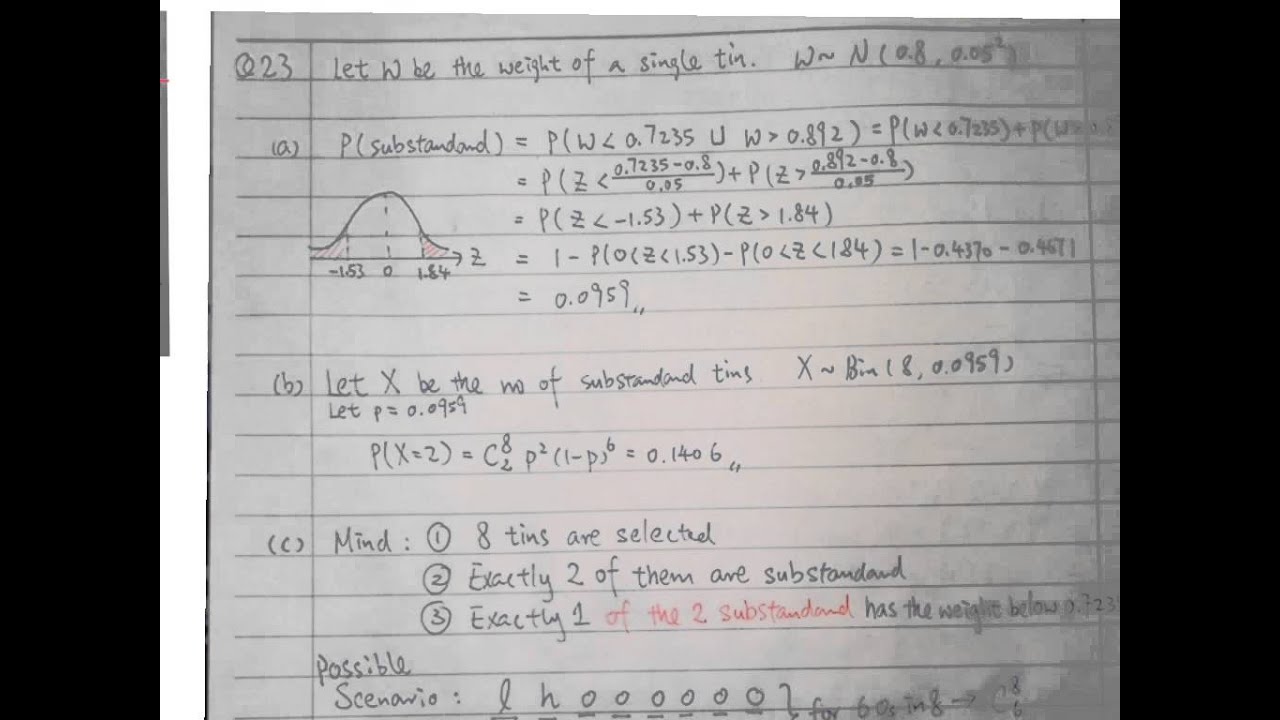 Q23 Let W be the weight of a single tin. W ~ N(0.8, 0.05²)
(a) P(substandand) = P(W < 0.7235 ∪ W > 0.892) = P(W < 0.7235) + P(W > 0.8
= P(Z < (0.7235-0.8)/0.05) + P(Z > (0.892-0.8)/0.05)
= P(Z < -1.53) + P(Z > 1.84)
= 1 - P(0 < Z < 1.53) - P(0 < Z < 1.84) = 1 - 0.4370 - 0.4671
-1.53 0 1.84 Z
= 0.0959
(b) Let X be the no of substandand tins X ~ Bin(8, 0.0959)
Let p = 0.0959
P(X=2) = C⁸₂ p²(1-p)⁶ = 0.1406
(c) Mind : ① 8 tins are selected
② Exactly 2 of them are substandand
③ Exactly 1 of the 2 substandand has the weight below 0.723
Possible
Scenario : l h o o o o o o } for 6 Os in 8 → C⁸₆